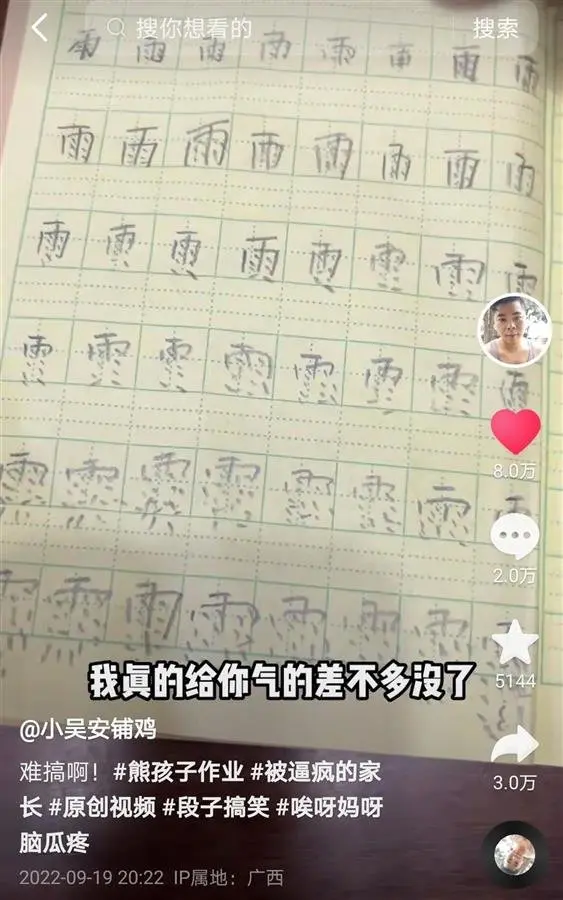 搜你想看的 搜索
雨 雨 雨 雨 雨 雨 雨 雨
雨 雨 雨 雨 雨 雨 雨 雨
雨 雨 雨 雨 雨 雨 雨 雨
雨 雨 雨 雨 雨 雨 雨
雨 雨 雨 雨 雨 雨 雨
雨 雨 雨 雨 雨 雨 雨
8.0万
2.0万
5144
3.0万
我真的给你气的差不多没了
@小吴安铺鸡
难搞啊！#熊孩子作业 #被逼疯的家
长 #原创视频 #段子搞笑 #唉呀妈呀
脑瓜疼
2022-09-19 20:22 IP属地：广西